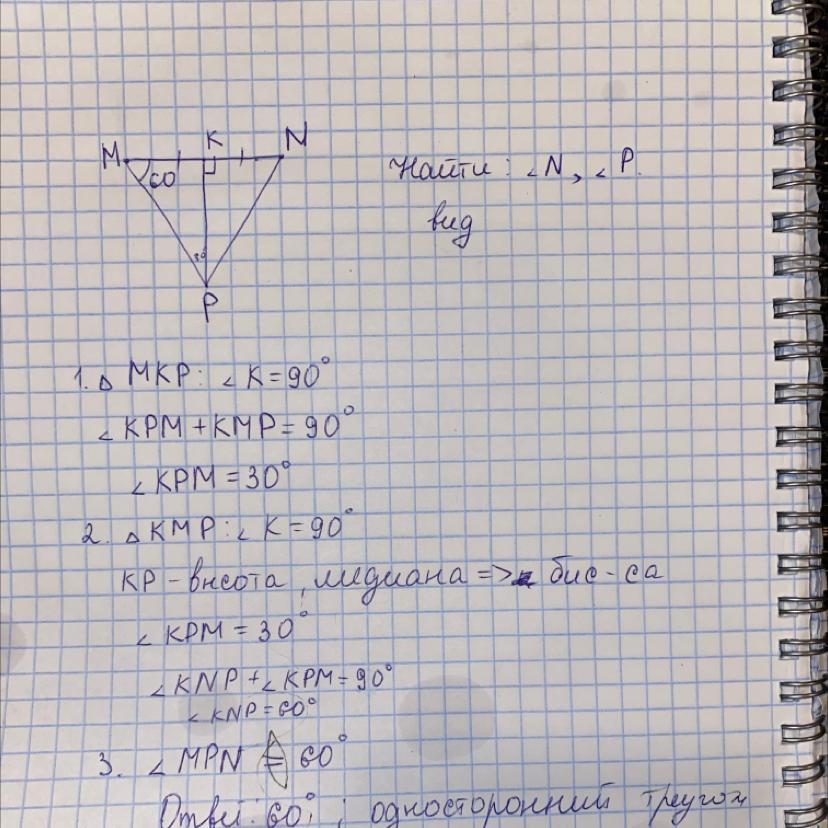 M K N
60
30
P
Найти: ∠N, ∠P.
вид
1. △ MKP: ∠ K = 90°
∠ KPM + KMP = 90°
∠ KPM = 30°
2. △ KMP: ∠ K = 90°
KP - высота, медиана => бис-са
∠ KPM = 30°
∠ KNP + ∠ KPM = 90°
∠ KNP = 60°
3. ∠ MPN = 60°
Ответ: 60°; односторонний треугол